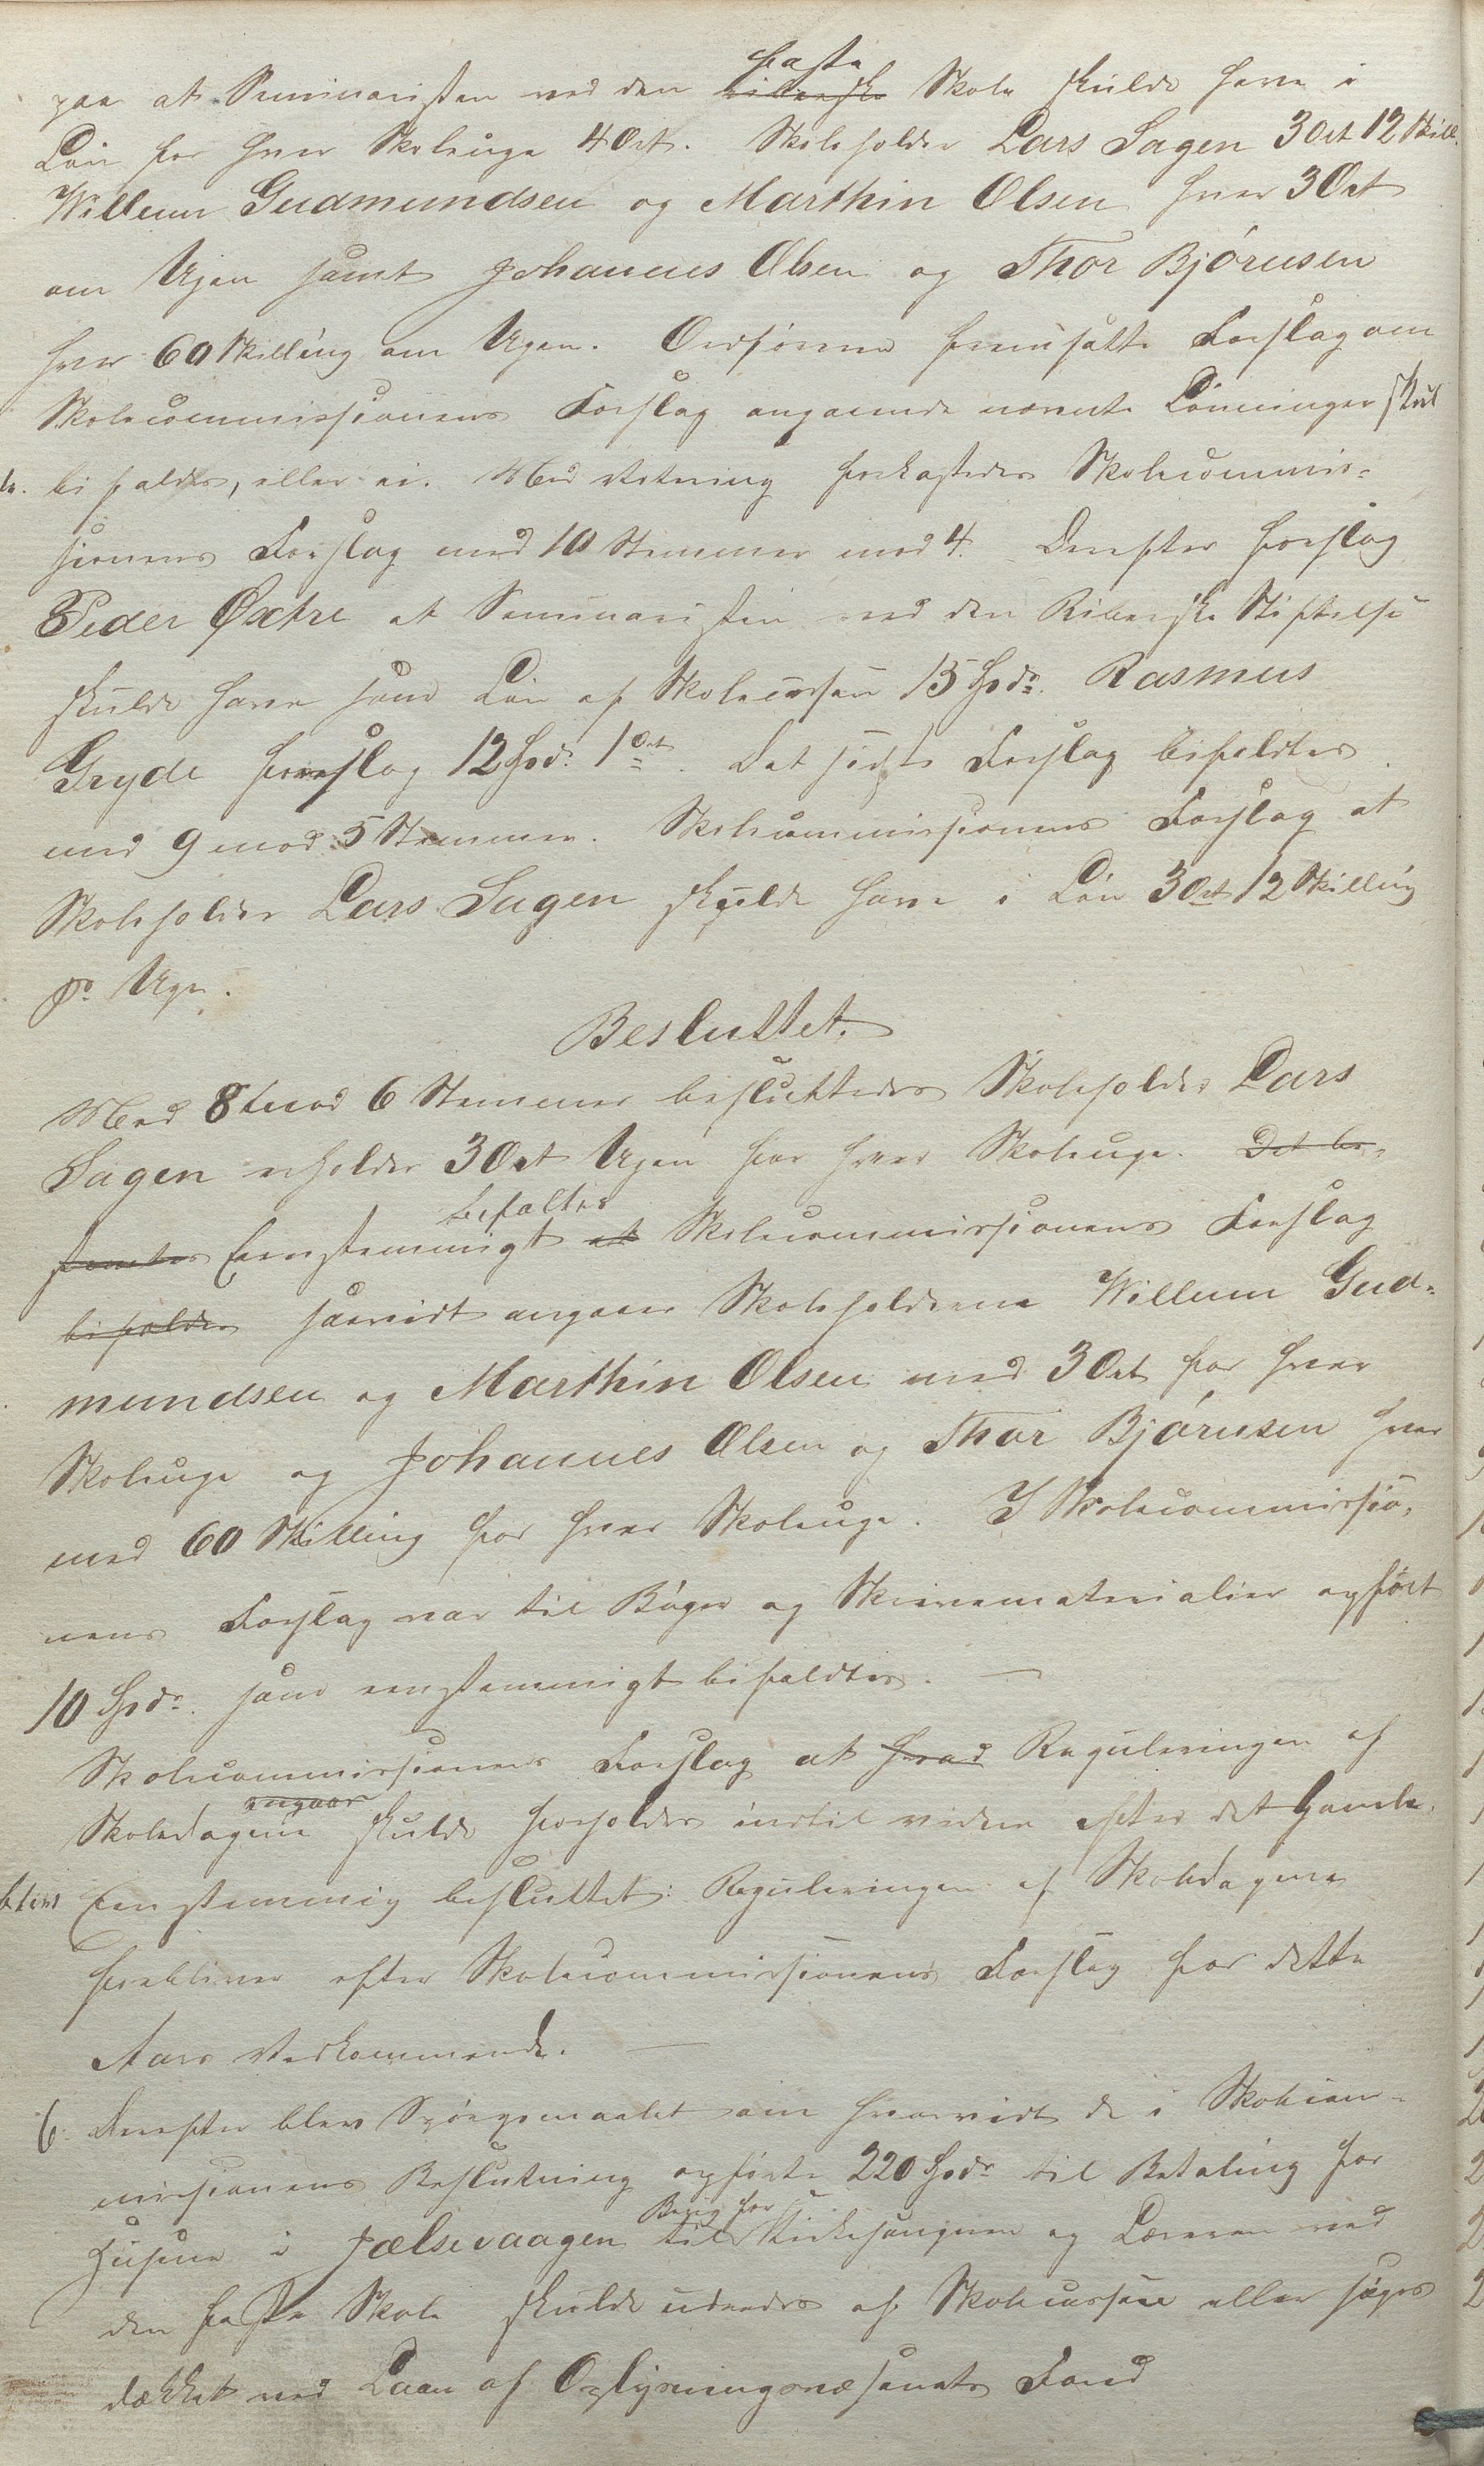 faste
paa at Seminaristen ved den riberske Skole skulde have i
Løn for hver Skoleuge 4 Ort. Skoleholder Lars Sagen 3 Ort 12 Skill.
Willum Gudmundsen og Marthin Olsen hver 3 Ort
om Ugen samt Johannes Olsen og Thor Bjørnsen
hver 60 Skilling om Ugen. Ordføreren fremsatte Forslag om
Skolecommissionens Forslag angaaende nævnte Lønninger skul
de. bifaldes, eller ei. Med Votering forkastedes Skolecommis-
sionens Forslag med 10 Stemmer mod 4. Derefter foreslog
Peder Østre at Seminaristen ved den Riberske Stiftelse
skulde have som Løn af Skolecassen 15 Spdr. Rasmus
Gryde foreslog 12 Spd. 1 Ort. Det sidste Forslag bifaldtes
med 9 mod 5 Stemmer. Skolecommissionens Forslag at
Skoleholder Lars Sagen skulde have i Løn 3 Ort 12 Skilling
pr Uge.
Besluttet.
Med 8 mod 6 Stemmer besluttedes Skoleholder Lars
Sagen erholder 3 Ort Ugen for hver Skoleuge. Det be-
bifaltes
stemtes Eenstemmigt at Skolecommissionens Forslag
bifaldes saavidt angaaer Skoleholderne Willum Gud-
mundsen og Marthin Olsen med 3 Ort for hver
Skoleuge og Johannes Olsen og Thor Bjørnsen hver
med 60 Skilling for hver Skoleuge. I Skolecommissio-
nens Forslag var til Bøger og Skrivematerialier opført
10 Spdr. som eenstemmigt bifaldtes.
Skolecommissionens Forslag at hvad Reguleringen af
angaar
Skoledagene skulde forholdes indtil videre efter det Gamle.
Eenstemmig besluttet: Reguleringen af Skoledagene
forbliver efter Skolecommissionens Forslag for dette
Aars Vedkommende.
6. Derefter blev Spørgsmaalet om hvorvidt de i Skolecom-
missionens Beslutning opførte 220 Spdr til Betaling for
Bolig for
Husene i Jælsevaagen til Kirkesangeren og Læreren ved
den faste Skole skulde udredes af Skolecassen eller søges
dækket ved Laan af Oplysningsvæsenets Fond